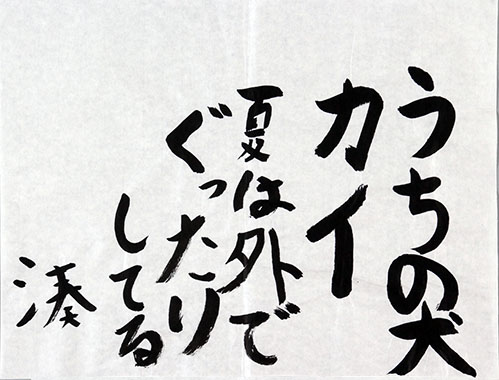 うちの犬
カイ
夏は外で
ぐったり
してる
湊